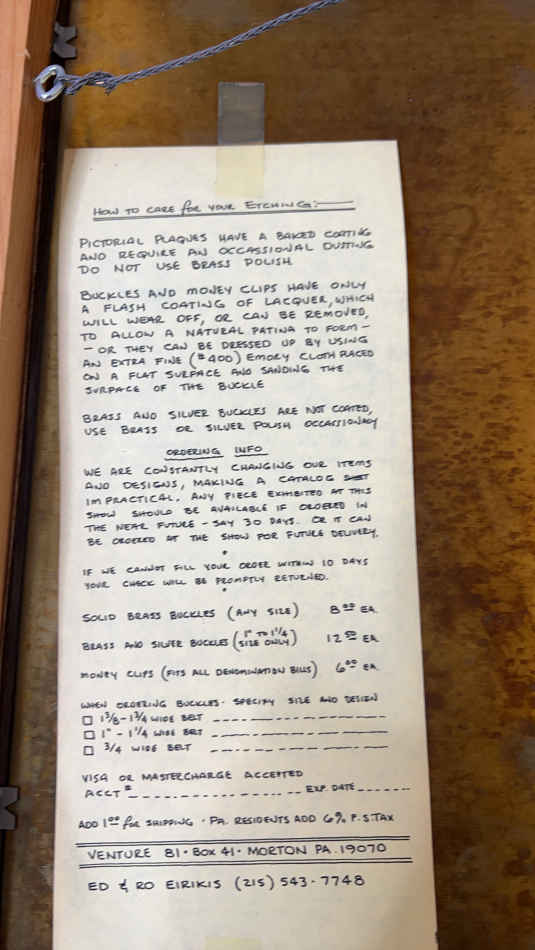 HOW TO CARE for YOUR ETCHING:
PICTORIAL PLAQUES HAVE A BAKED COATING
AND REQUIRE AN OCCASSIONAL DUSTING
DO NOT USE BRASS POLISH
BUCKLES AND MONEY CLIPS HAVE ONLY
A FLASH COATING OF LACQUER, WHICH
WILL WEAR OFF, OR CAN BE REMOVED,
TO ALLOW A NATURAL PATINA TO FORM -
- OR THEY CAN BE DRESSED UP BY USING
AN EXTRA FINE (#400) EMORY CLOTH PLACED
ON A FLAT SURFACE AND SANDING THE
SURFACE OF THE BUCKLE
BRASS AND SILVER BUCKLES ARE NOT COATED,
USE BRASS OR SILVER POLISH OCCASSIONALY
ORDERING INFO
WE ARE CONSTANTLY CHANGING OUR ITEMS
AND DESIGNS, MAKING A CATALOG
IMPRACTICAL. ANY PIECE EXHIBITED AT THIS
SHOW SHOULD BE AVAILABLE IF ORDERED IN
THE NEAR FUTURE - SAY 30 DAYS. OR IT CAN
BE ORDERED AT THE SHOW FOR FUTURE DELIVERY.
IF WE CANNOT FILL YOUR ORDER WITHIN 10 DAYS
YOUR CHECK WILL BE PROMPTLY RETURNED.
SOLID BRASS BUCKLES (ANY SIZE) 8 00 EA.
BRASS AND SILVER BUCKLES (1" TO 1 1/4 SIZE ONLY) 12 50 EA
MONEY CLIPS (FITS ALL DENOMINATION BILLS) 6 00 EA.
WHEN ORDERING BUCKLES - SPECIFY SIZE AND DESIGN
☐ 1 3/8 - 1 3/4 WIDE BELT
☐ 1" - 1 1/4 WIDE BELT
☐ 3/4 WIDE BELT
VISA OR MASTERCHARGE ACCEPTED
ACCT # EXP. DATE
ADD 1 00 for SHIPPING · PA. RESIDENTS ADD 6% P.S.TAX
VENTURE 81 · BOX 41 · MORTON PA. 19070
ED & RO EIRIKIS (215) 543-7748